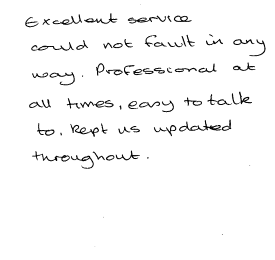 Excellent service
could not fault in any
way. Professional at
all times, easy to talk
to. Kept us updated
throughout.